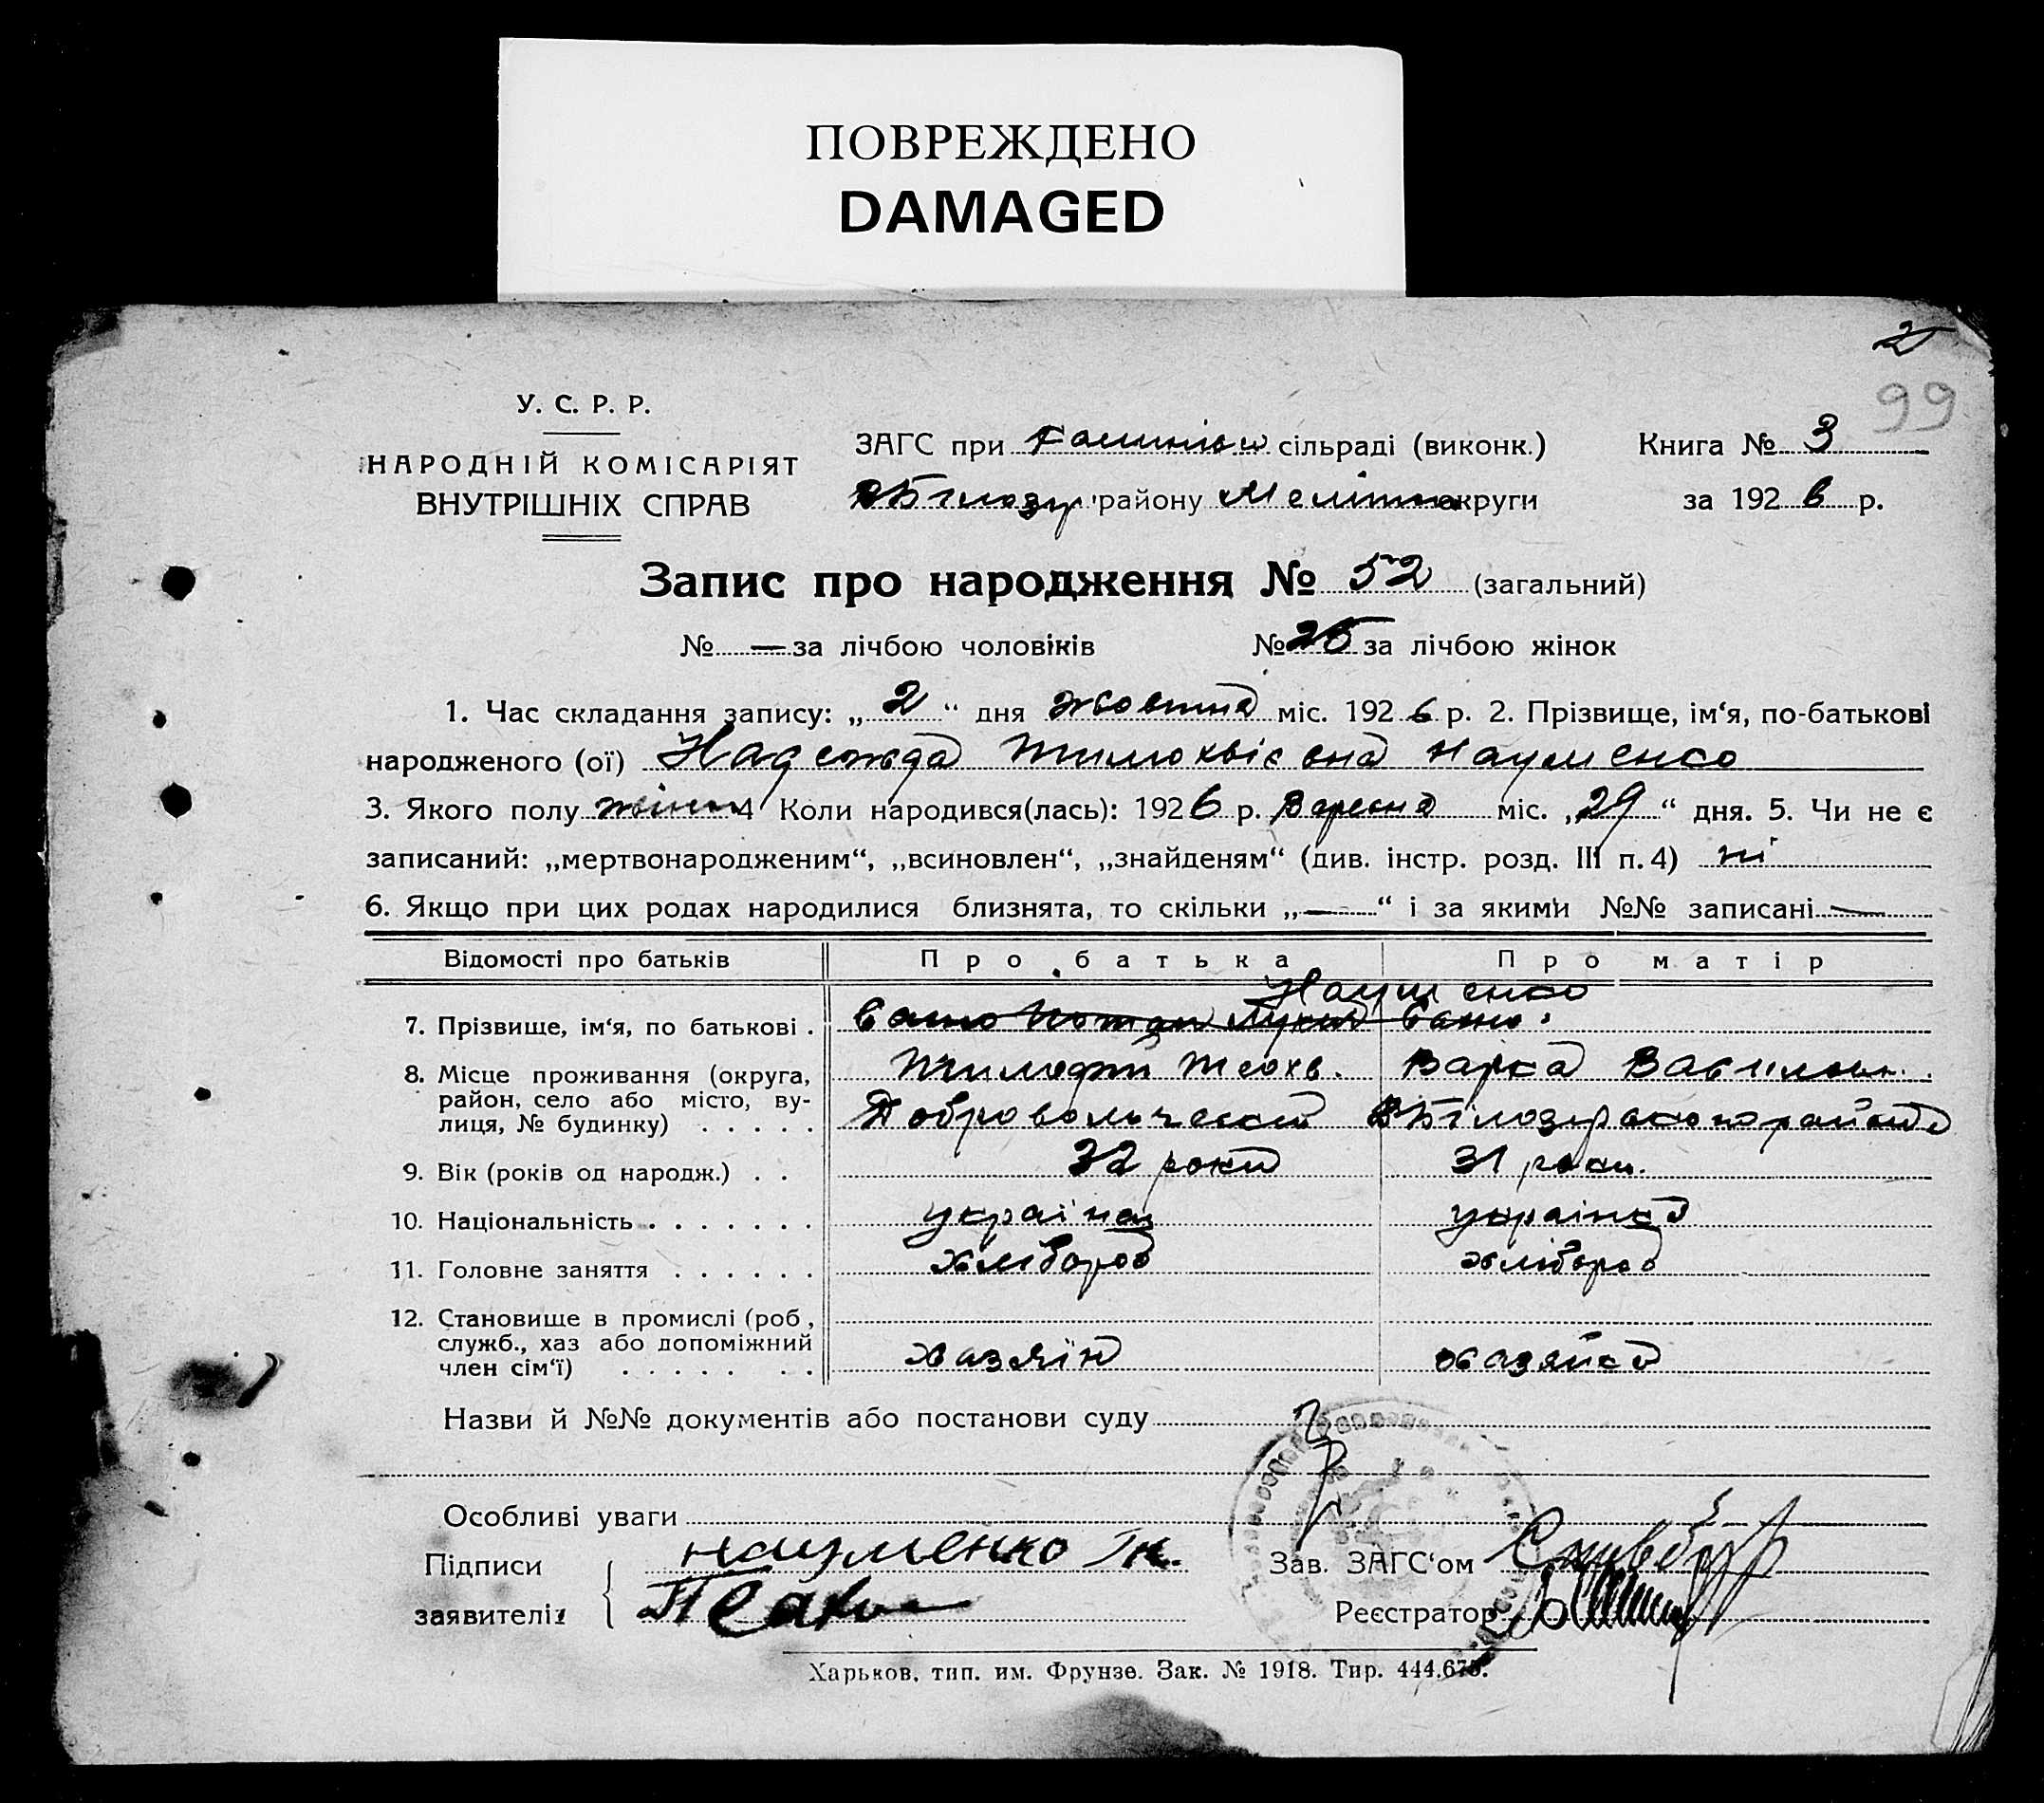 ПОВРЕЖДЕНО
DAMAGED
2
99
У. С. Р. Р.
НАРОДНІЙ КОМІСАРІЯТ
ВНУТРІШНІХ СПРАВ
ЗАГС при сільраді (виконк.) Книга № 3
В Білозір району Меліт округи за 1926 р.
Запис про народження № 52 (загальний)
№ — за лічбою чоловіків № 26 за лічбою жінок
1. Час складання запису: „2“ дня жовтня міс. 1926 р. 2. Прізвище, ім‘я, по-батькові
народженого (ої) Надежда Тимохвіевна Науменко
3. Якого полу жіноч 4 Коли народився(лась): 1926 р. Вересня міс. „29“ дня. 5. Чи не є
записаний: „мертвонародженим“, „всиновлен“, „знайденям“ (див. інстр. розд. III п. 4) ні
6. Якщо при цих родах народилися близнята, то скільки „—“ і за якими №№ записані —
Відомості про батьків Про батька Про матір
Науменко
7. Прізвище, ім‘я, по батькові .
8. Місце проживання (округа, Тимофій Теохв. Варка Вавилон.
район, село або місто, ву-
лиця, № будинку) . . . . . Добровольческий В Білозірського району
9. Вік (років од народж.) . . 32 роки 31 роки.
10. Національність . . . . . . . українец українка
11. Головне заняття . . . . . . хлібороб хлібороб
12. Становище в промислі (роб,
служб., хаз або допоміжний хазяїн хазяйка
член сім‘ї) . . . . . . .
Назви й №№ документів або постанови суду
Особливі уваги
Підписи науменко Зав. ЗАГС‘ом
заявителів Реєстратор
Харьков, тип. им. Фрунзе. Зак. № 1918. Тир. 444.675.